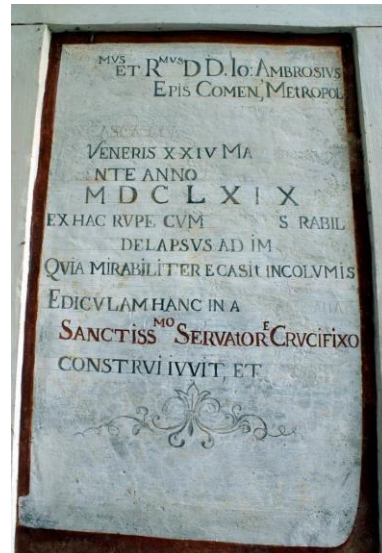 MVS ET RMVS D D. IO: AMBROSIVS
EPIS COMEN, METROPOL
VENERIS XXIV MA
NTE ANNO
M D C L X I X
EX HAC RVPE CVM S RABIL
DELAPSVS AD IM
QVIA MIRABILITER ECASIT INCOLVMIS
EDICVLAM HANC IN A
SANCTISSMO SERVATORE CRVCIFIXO
CONSTRVI IVVIT, ET